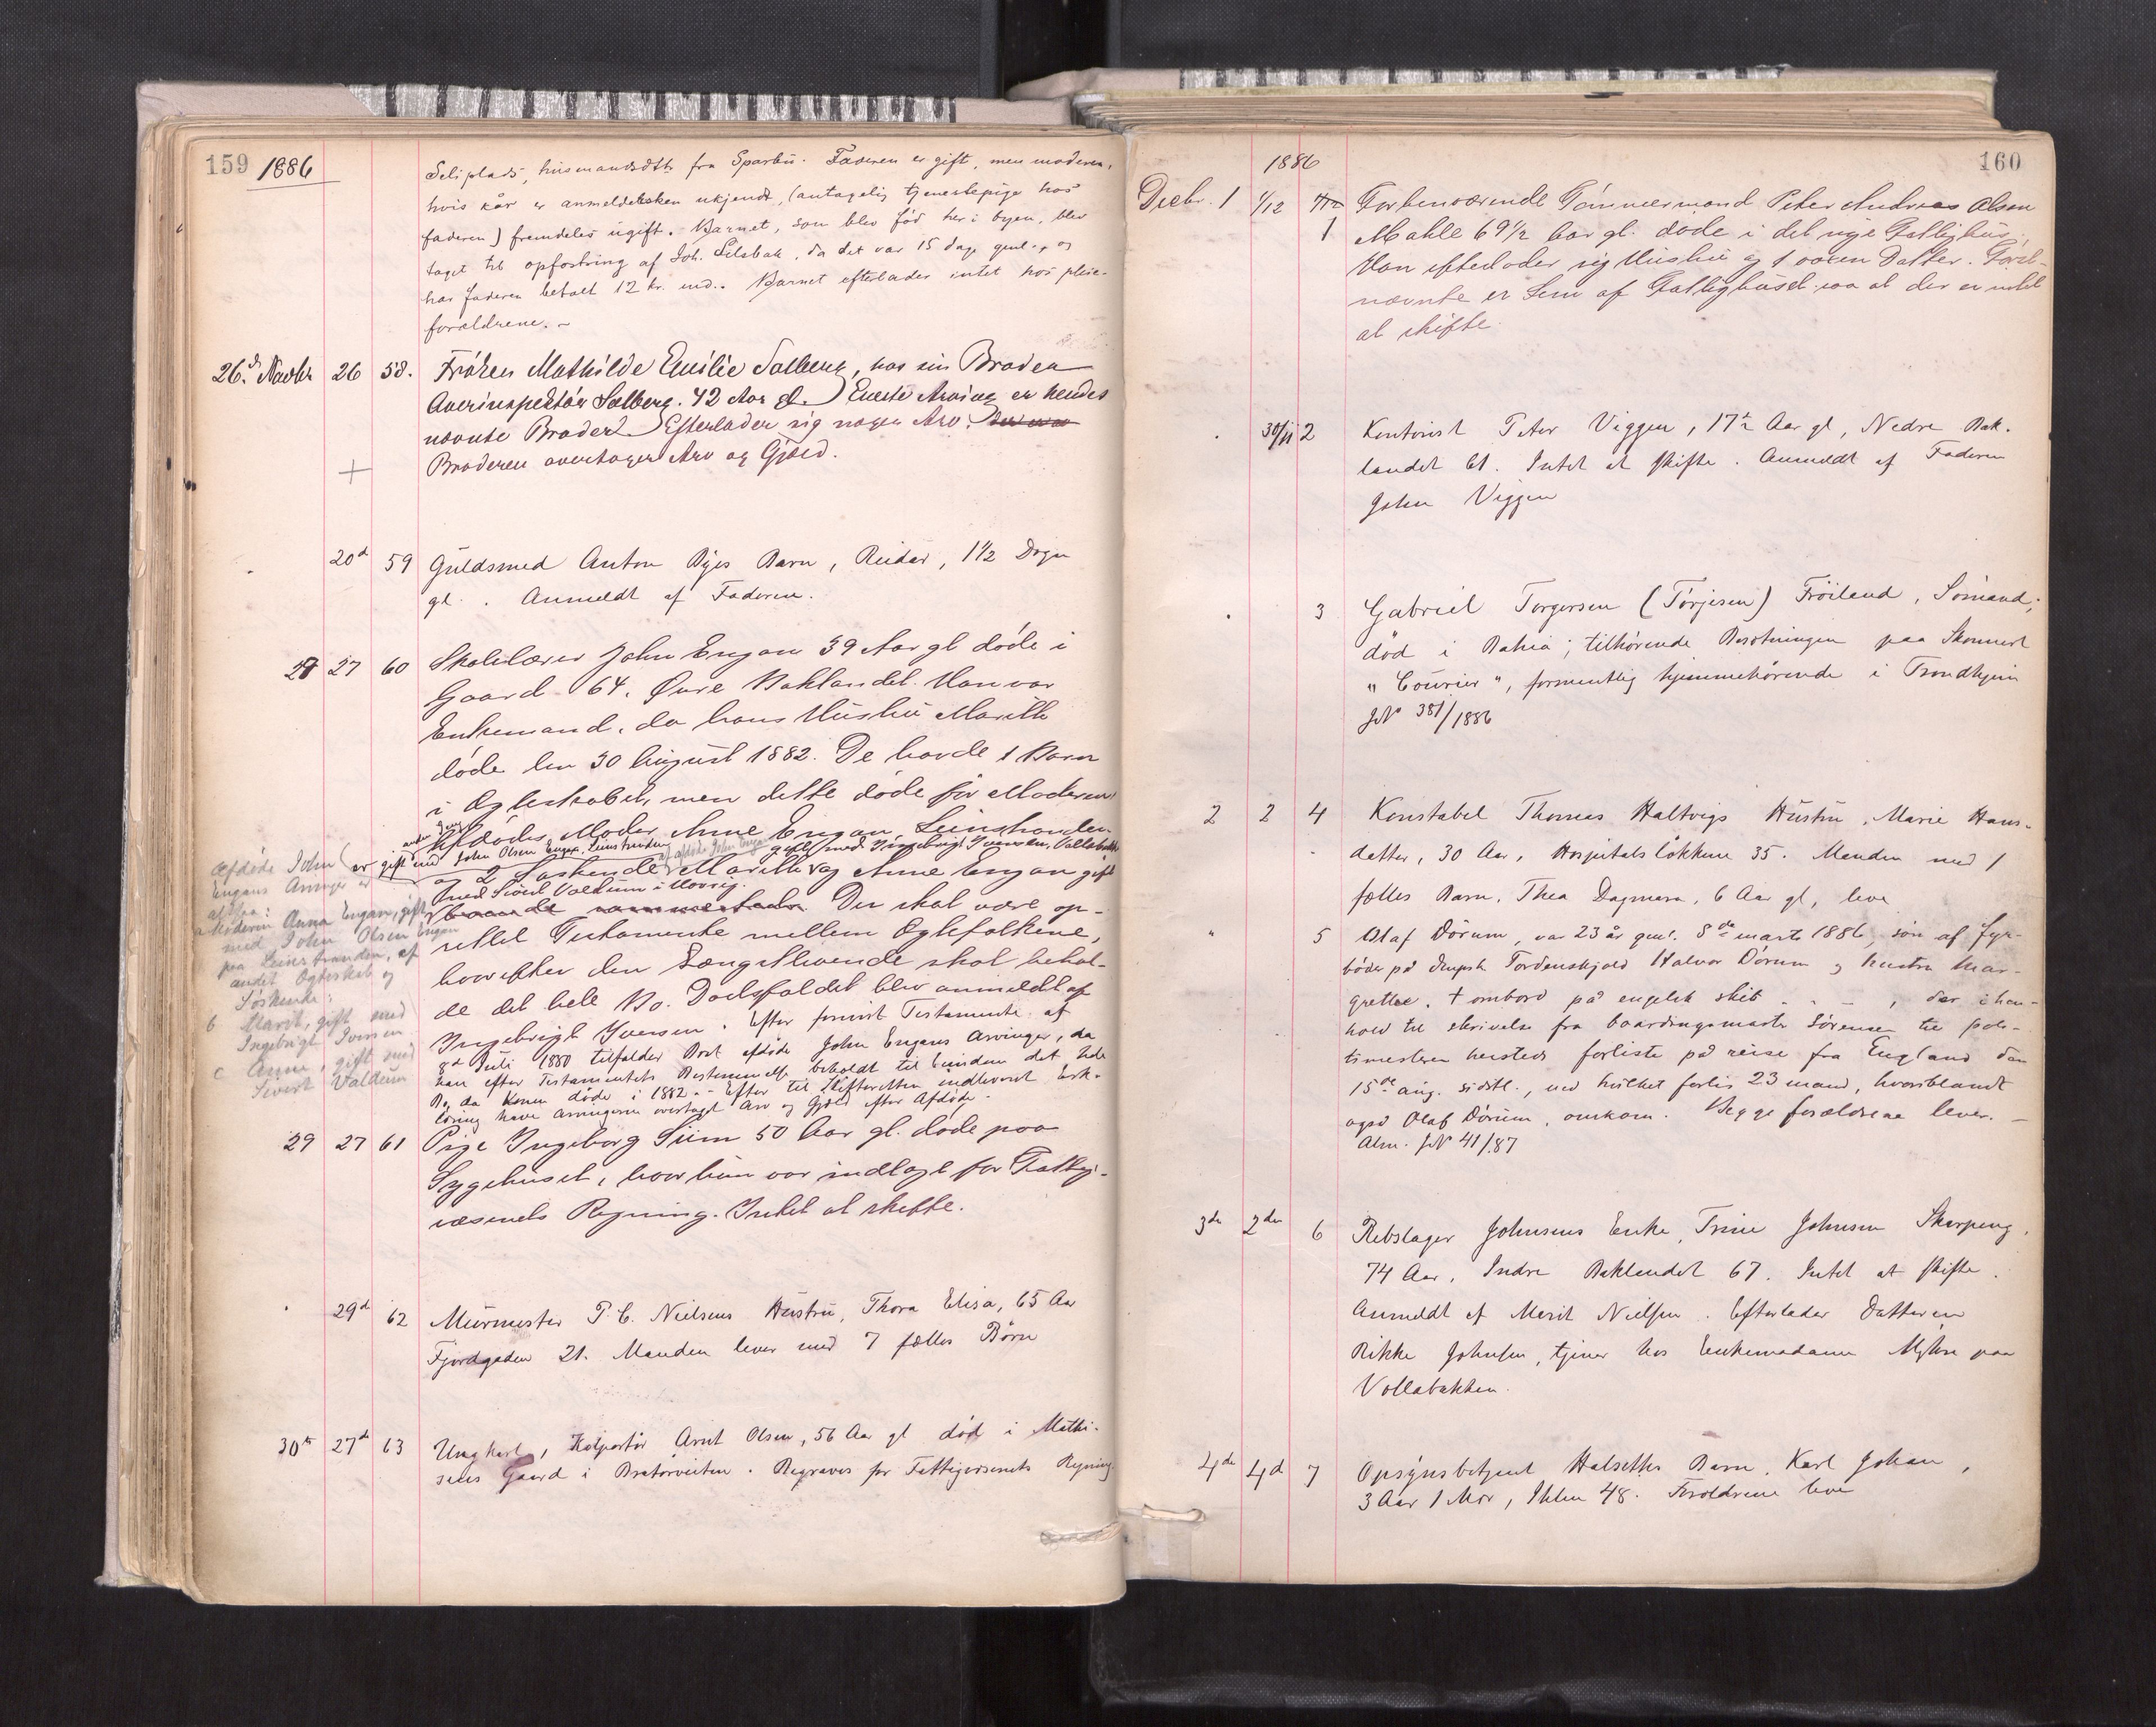 159 1886
Seliplads, husmandsdtr fra Sparbu. Faderen er gift, men moderen,
hvis kår er anmeldelsken ukjendt, (antagelig tjenestepige hos
faderen) fremdeles ugift. Barnet, som blev fød her i byen, blev
taget til opfostring af Joh. Lilabak, da det var 15 dage gml., og
har faderen betalt 12 kr. md. Barnet efterlader intet hos pleie-
forældrene. -
26.d Novbr 26 58. Frøken Mathilde Emilie Salberg, hos sin Broder
Overinspektør Salberg. 42 Aar gl. Eneste Arving er hendes
nævnte Broder. Efterlader sig nogen Arv.
Broderen overtager Arv og Gjæld.
20d 59 Guldsmed Anton Byes Barn, Reidar, 1 1/2 Døgn
gl. . Anmeldt af Faderen.
27 27 60 Skolelærer John Engan 39 Aar gl døde i
Gaard 64, Øvre Baklandet. Han var
Enkemand, da hans Hustru Marith
døde den 30 August 1882. De havde 1 Barn
i Ægteskabet, men dette døde før Moderen.
Afdødes Moder Anne Engan, Leinstranden
er gift med John Olsen Engan, Leinstranden
af afdøde John Engan
gift med Ingebrigt Iversen, Vollabakken
og 2 Søskende Marith og Anne Engan gift
med Sivert Valdum i Hovsrg.
Der skal være op-
rettet Testamente mellem Ægtefolkene,
hvorefter den Længstlevende skal behol-
de det hele Bo. Dødsfaldet blev anmeldt af
Ingebrigt Iversen. Efter forevist Testamente af
8d Juli 1880 tilfalder Boet afdøde John Engans Arvinger, da
han efter Testamentets Bestemmelse beholdt til Eiendom det hele
Bo, da Konen døde i 1882. - Efter til Skifteretten indleveret Erk-
læring have Arvingerne overtaget Arv og Gjæld efter Afdøde.
Afdøde John
Engans Arvinger er
altsaa:
a Moderen Anna Engan, gift
med John Olsen Engan
paa Leinstranden, af
andet Ægteskab og
Søskende:
b Marit, gift med
Ingebrigt Iversen
c Anne, gift med
Sivert Valdum
29 27 61 Pige Ingeborg Siim 50 Aar gl. døde paa
Sygehuset, hvor hun var indlagt for Fattig-
væsenets Regning. Intet at skifte.
29d 62 Murmester P. C. Nielsens Hustru, Thora Elisa, 65 Aar
Fjordgaden 21. Manden lever med 7 fælles Børn
30te 27d 63 Ungkarl, Kolportør Arnt Olsen, 56 Aar gl død i Mathi-
sens Gaard i Bratørveiten. Begraves for Fattigvæsenets Regning.
1886 160
Decbr. 1 1/12 1 Forhenværende Tømmermand Peter Andreas Olsen
Makle 69 1/2 Aar gl. døde i det nye Fattighus.
Han efterlader sig Hustru og 1 voxen Datter. Først-
nævnte er Lem af Fattighuset saa at der er intet
at skifte.
30/11 2 Kontorist Peter Viggen, 17 1/2 Aar gl, Nedre Bak-
landet 61. Intet at skifte. Anmeldt af Faderen
John Viggen
3 Gabriel Torgersen (Tørjesen) Frøiland, Sømand;
død i Bahia; tilhørende Besetningen paa Skonnert
"Courier", formentlig hjemmehørende i Trondhjem
JN° 381/1886
2 2 4 Konstabel Thomas Haltvigs Hustru, Marie Hans-
datter, 30 Aar, Hospitalsløkken 35. Manden med 1
fælles Barn, Thea Dagmara, 6 Aar gl, leve
" 5 Olaf Dørum, var 23 år gml. 8de marts 1886, søn af fyr-
bøder på dmpsk Tordenskjold Halvor Dørum og hustru Mar-
grethe. † ombord på engelsk skib - - - , der i hen-
hold til skrivelse fra boardingmaster Sørensen til poli-
timesteren hersteds forliste på reise fra England den
15de aug. sidstl., ved hvilket forlis 23 mand, hvoriblandt
også Olaf Dørum, omkom. Begge forældrene lever. -
Alm. JN° 41/87
3die 2den 6 Rebslager Johnsens Enke, Trine Johnsen Skarpeng,
74 Aar, Indre Baklandet 67. Intet at skifte.
Anmeldt af Merit Nielsen. Efterlader Datteren
Rikke Johnsen, tjener hos Enkemadame Myhre paa
Vollabakken.
4de 4d 7 Opsynsbetjent Halsetths Barn, Karl Johan,
3 Aar 1 Mdr, Ihlen 48. Forældrene leve